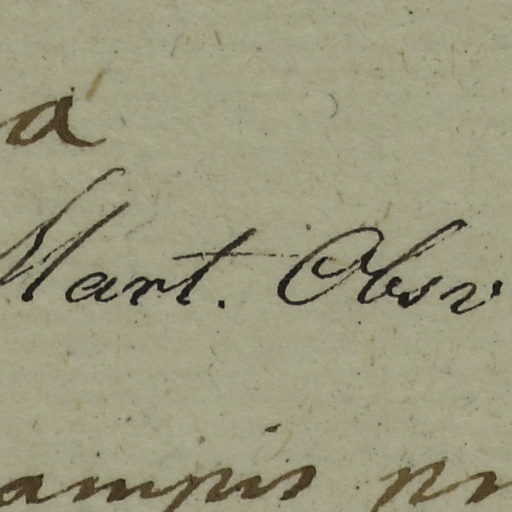 a
Mart. Obsv
ampis pr